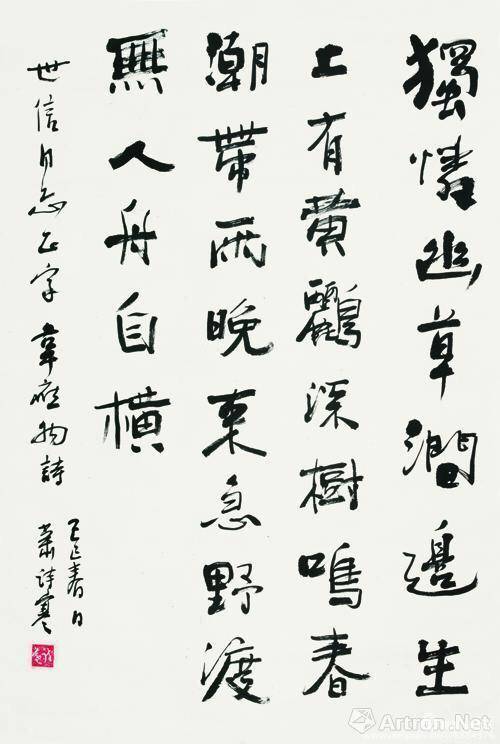 獨憐幽草澗邊生
上有黃鸝深樹鳴春
潮帶雨晚來急野渡
無人舟自橫
世信同志正字 韋應物詩
春日
Artron.Net